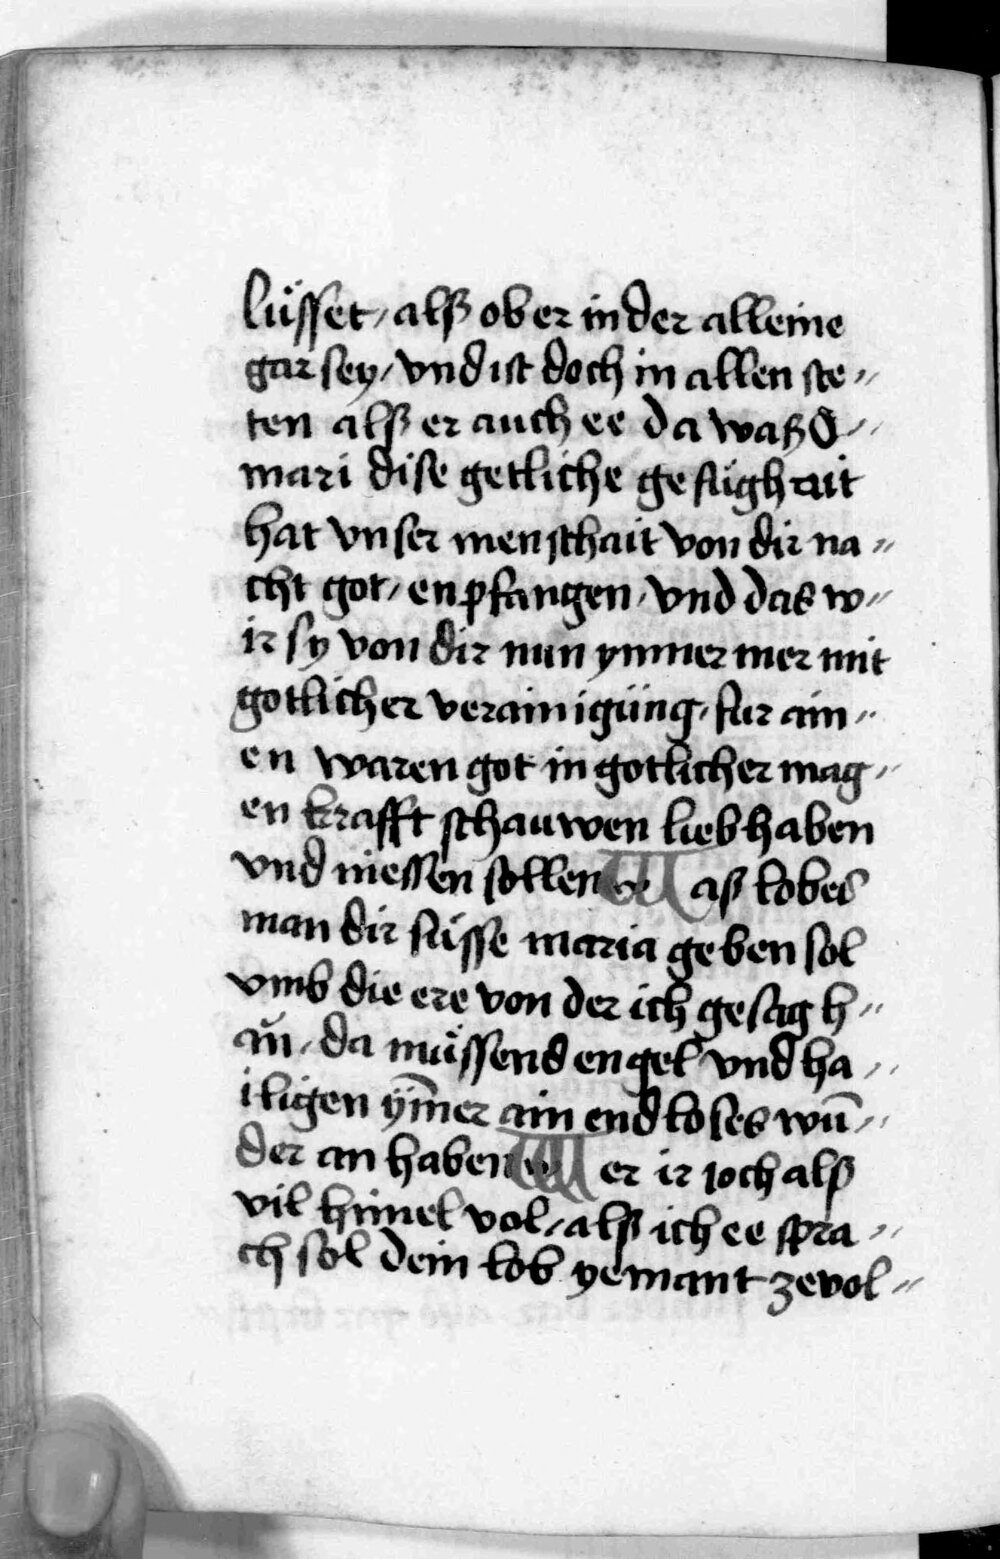 lüsset / alß ob er in der alleine
gar sey / vnd ist doch in allen ste〃
ten alß er auch ee da waß O〃
mari dise getliche gefüghait
hat vnser menschait von dir na〃
cht got / enpfangen / vnd das w〃
ir sy von dir nun ymmer mer mit
gotlicher verainigüng / fur ain〃
en waren got in gotlicher mag〃
en krafft schauwen lieb haben
vnd niessen sollen Waß lobes
man dir süsse maria geben sol
vmb die ere von der ich gesag h〃
an / da müssend engel vnd ha〃
iligen ym̄er ain endloses wū〃
der an haben Wer ir joch alß
vil himel vol / alß ich ee spra〃
ch sol dein lob yemant zevol〃